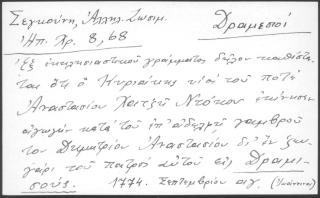 Σεγκούνη, Ἀλληλ. Ζωσιμ. Δραμεσιοί
Ἠπ. Χρ. 8, 68
Ἐξ ἐκκλησιαστικοῦ γράμματος δῆλον καθίστα-
ται ὅτι ὁ Κυριάκης υἱὸς τοῦ ποτὲ
Ἀναστασίου Χατζῆ Ντόκου ἐκίνησεν
ἀγωγὴν κατὰ τοῦ ἐπ' ἀδελφῇ γαμβροῦ
του Δημητρίου Ἀναστασίου δι' ἓν ζευ-
γάρι τοῦ πατρὸς αὐτοῦ εἰς Δραμι-
σούς. 1774. Σεπτεμβρίου αιγ. (Ἰωάννινα)